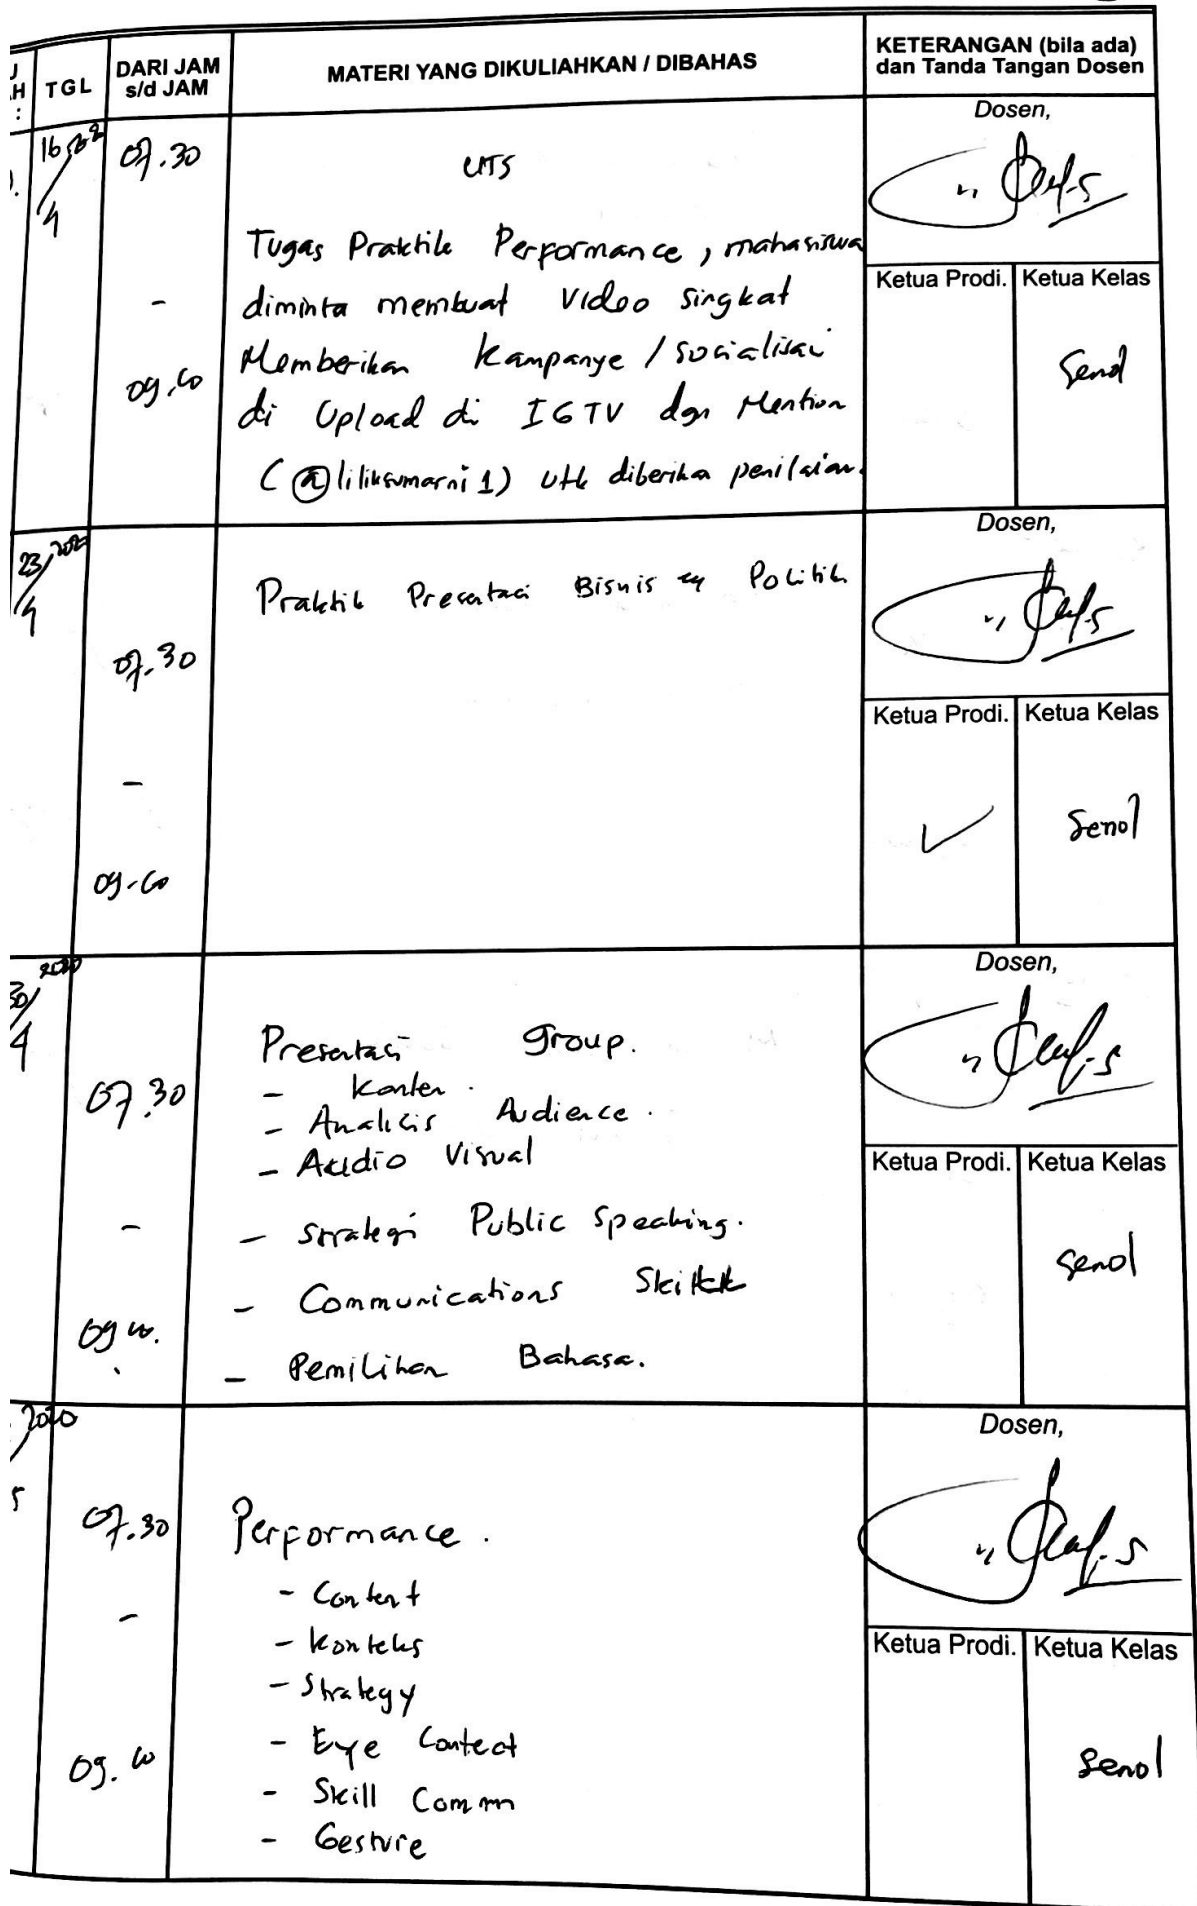 TGL
DARI JAM
s/d JAM
MATERI YANG DIKULIAHKAN / DIBAHAS
KETERANGAN (bila ada)
dan Tanda Tangan Dosen
16
4
07.30
-
09.00
UTS
Tugas Praktik Performance, mahasiswa
diminta membuat Video singkat
Memberikan Kampanye / socialisai
di Upload di IGTV dgn Mention
(@liliksumarni1) utk diberikan penilaian.
Dosen,
Ketua Prodi.
Ketua Kelas
23/2020
4
07.30
-
09.00
Praktik Presentasi Bisnis Politik
Dosen,
Ketua Prodi.
Ketua Kelas
30/2020
4
07.30
-
09.00
Presentasi group.
- Konten.
- Analisis Audience.
- Audio Visual
- Strategi Public Speaking.
- Communications
- Pemilihan Bahasa.
Dosen,
Ketua Prodi.
Ketua Kelas
2020
5
07.30
-
09.00
Performance.
- Content
- Konteks
- Strategy
- Eye Contect
- Skill Comm
- Gesture
Dosen,
Ketua Prodi.
Ketua Kelas